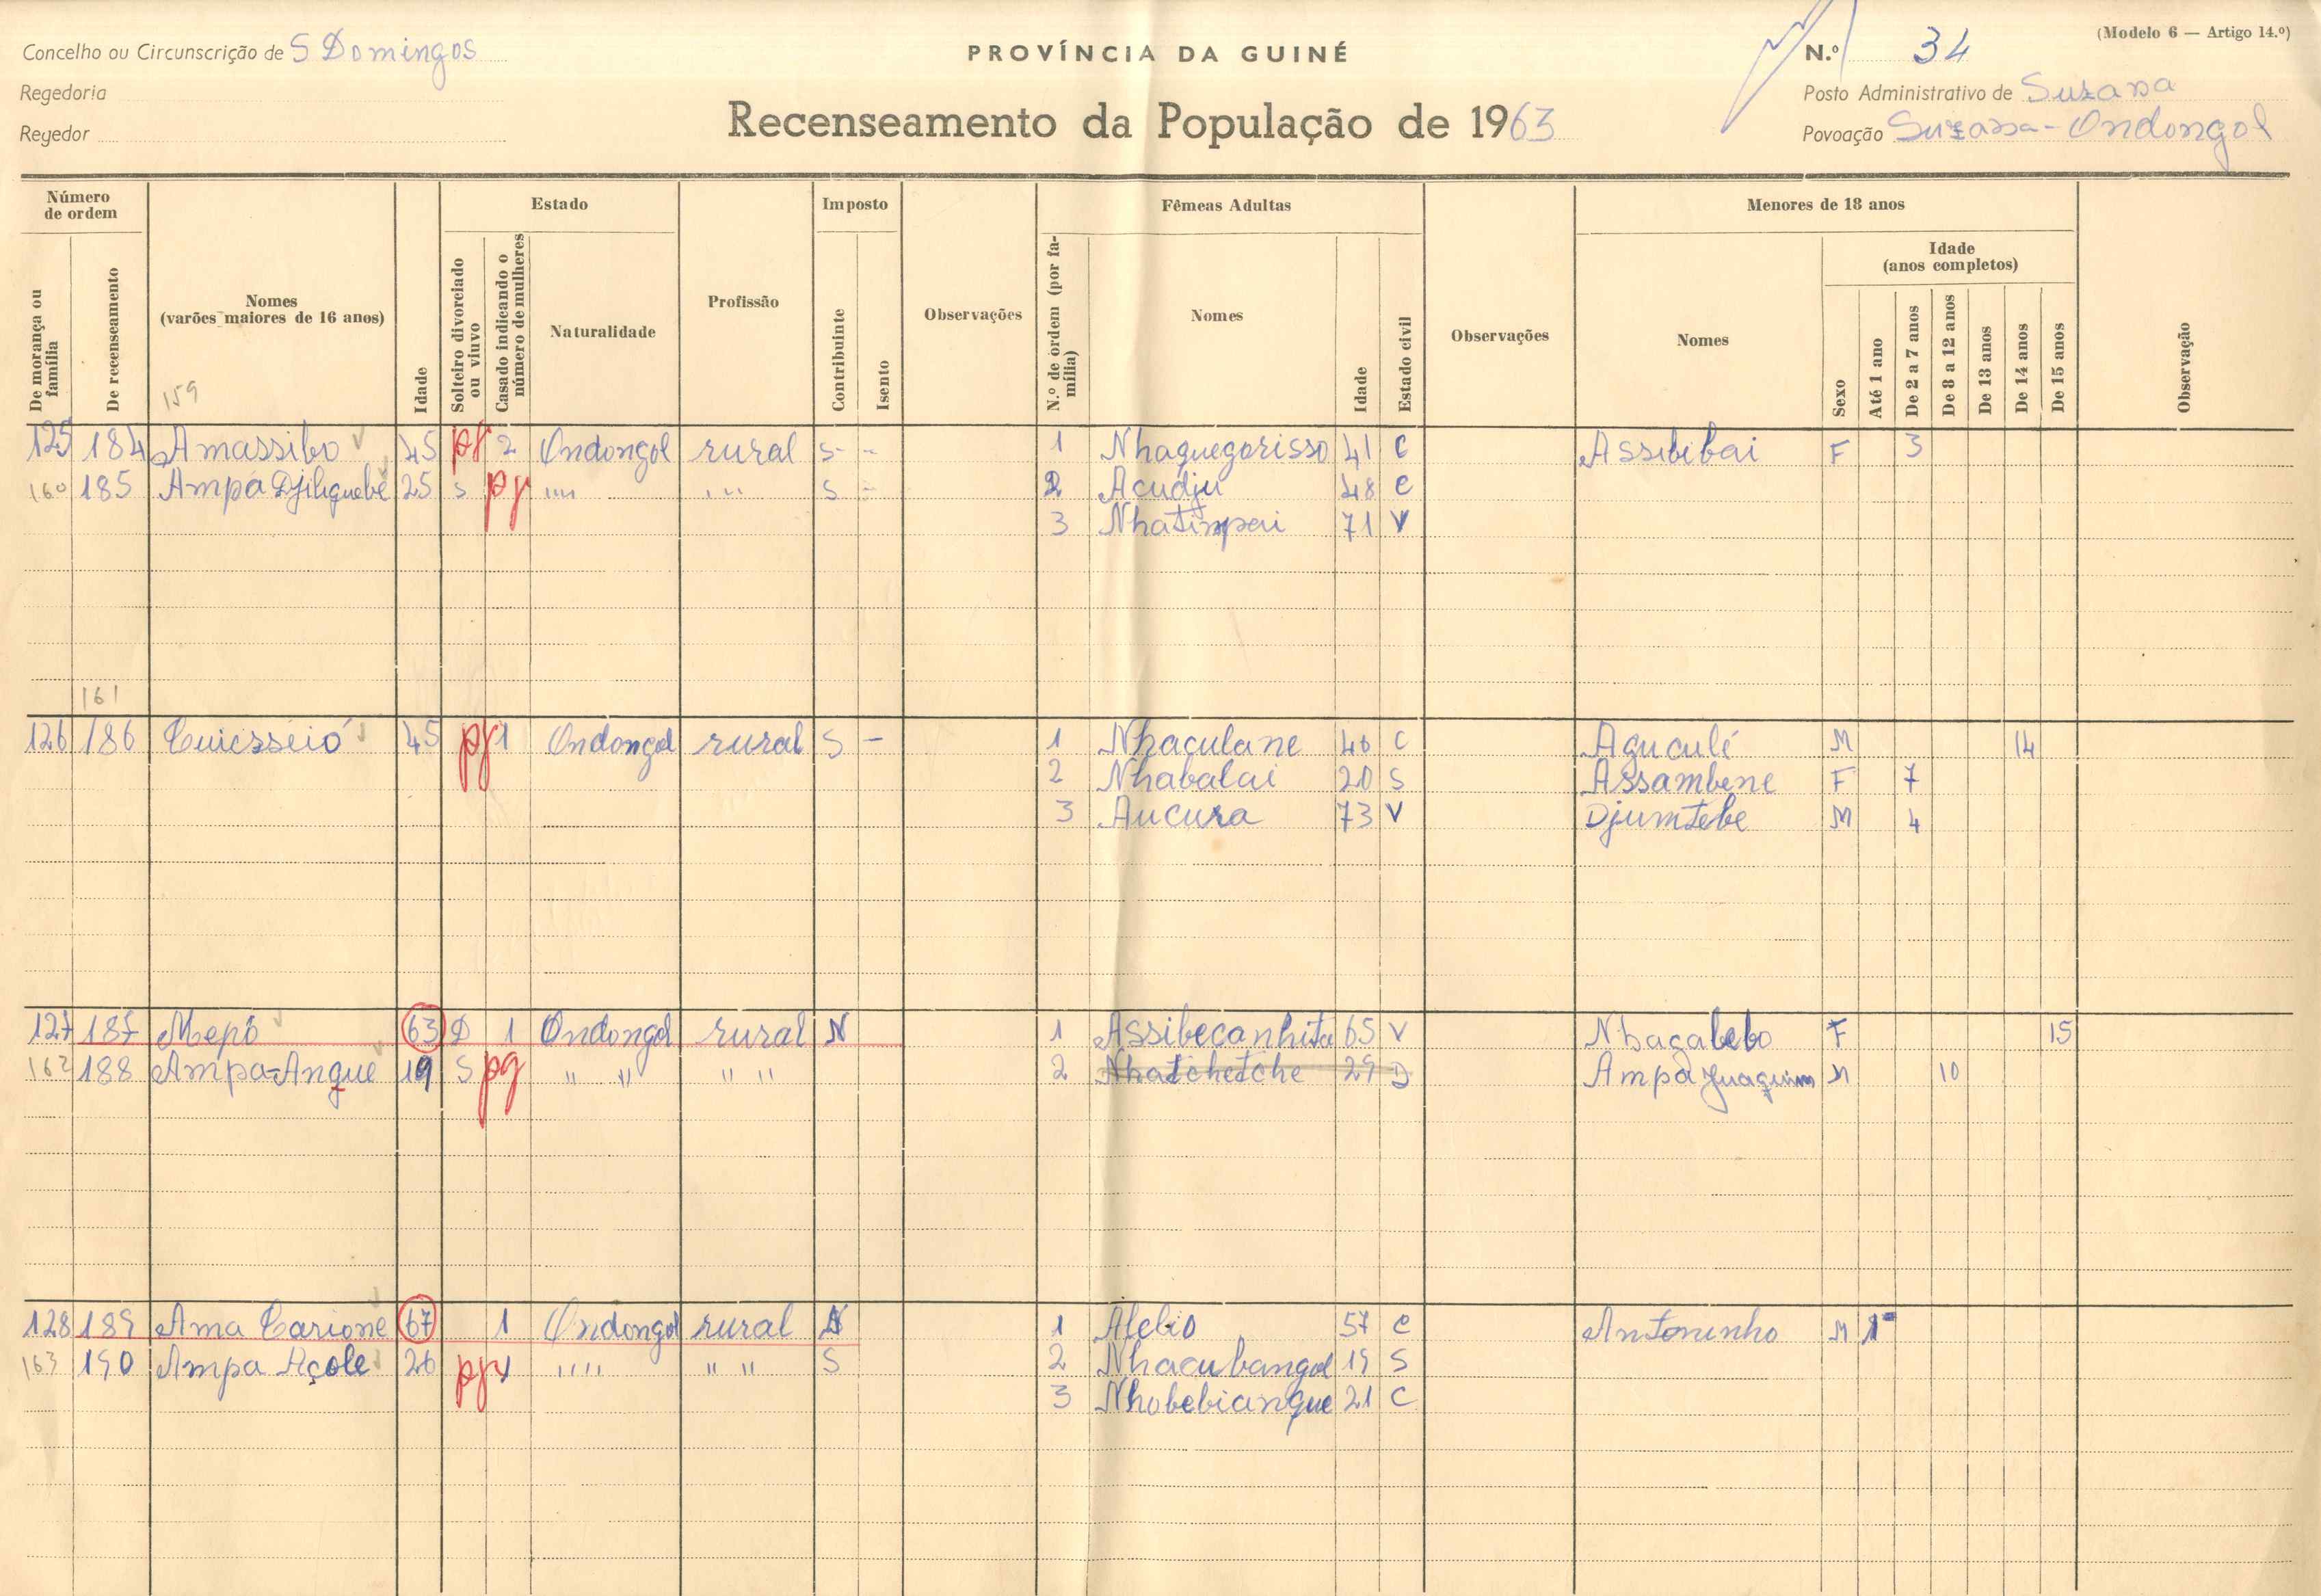 (Modelo 6 — Artigo 14.º)
Concelho ou Circunscrição de S Domingos
PROVÍNCIA DA GUINÉ
N.º 34
Regedoria
Posto Administrativo de Suzana
Regedor
Recenseamento da População de 1963
Povoação Suzana-Ondongol
Número de ordem
De morança ou família
De recenseamento
Nomes (varões maiores de 16 anos)
159
Idade
Estado
Solteiro divorciado ou viuvo
Casado indicando o número de mulheres
Naturalidade
Profissão
Imposto
Contribuinte
Isento
Observações
Fêmeas Adultas
N.º de ordem (por família)
Nomes
Idade
Estado civil
Observações
Menores de 18 anos
Nomes
Sexo
Idade (anos completos)
Até 1 ano
De 2 a 7 anos
De 8 a 12 anos
De 13 anos
De 14 anos
De 15 anos
Observação
125 184 Amassibo 45 pg 2 Ondongol rural S - - 1 Nhaquegorisso 41 C Assibibai F 3
160 185 Ampá Djiliquebé 25 S pg "" "" S - 2 Acudju 48 C
3 Nhatimpai 71 V
161
126 186 Cuiesseió 45 pg 1 Ondongol rural S - 1 Nhaculane 46 C Aguculé M 14
2 Nhabalai 20 S Assambene F 7
3 Aucura 73 V Djumtebe M 4
127 187 Mepó 63 D 1 Ondongol rural N 1 Assibecanhita 65 V Nhagabebo F 15
162 188 Ampa-Angue 19 S pg " " " " 2 Nhatchetche 29 D Ampa Juaquim M 10
128 189 Ama Carione 67 1 Ondongol rural N 1 Alebio 57 C Antoninho M 1
163 190 Ampa Açole 26 pg "" " " S 2 Nhacubangol 19 S
3 Nhobebiangue 21 C